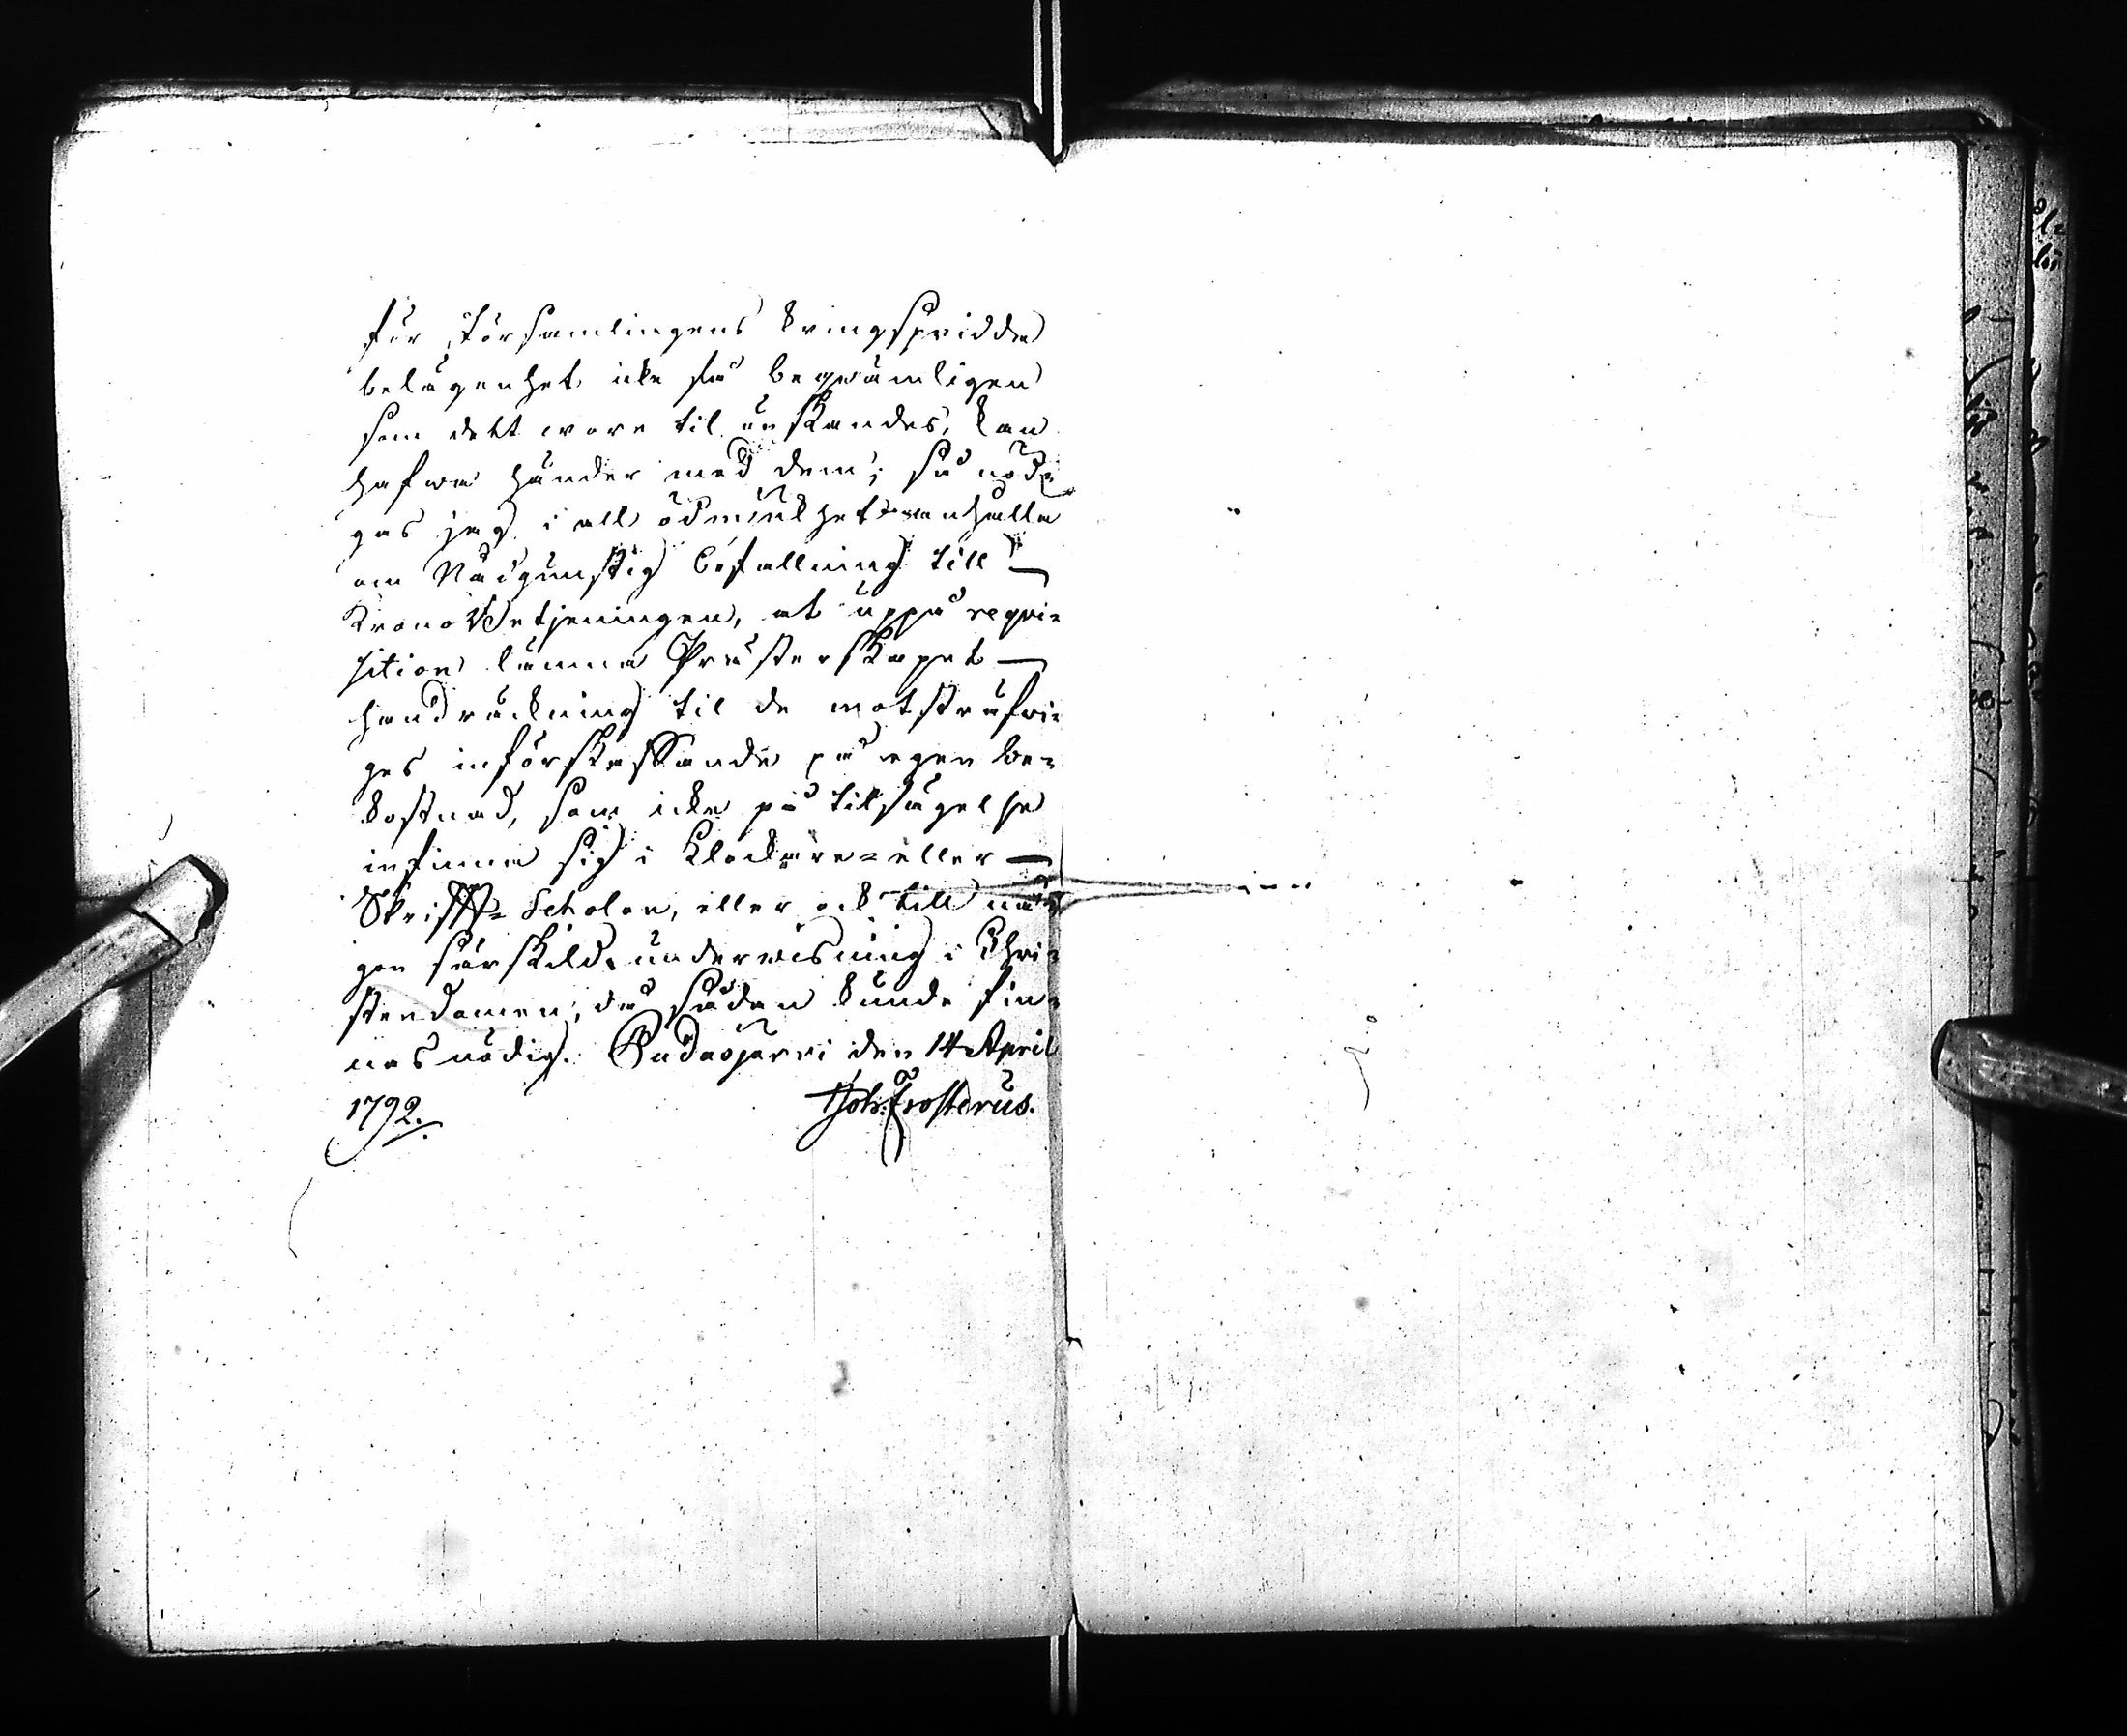 för Församlingens kringspridda
belägenhet icke så beqwämligen
som dett wore til önskandes, kan
hafwa händer med dem; så nöd-
gas jag i all ödmiukhet anhålla
om Nådgunstig befallning till
Krono Betjeningen, at uppå reqvi-
sition lämna Prästerskapet
handräckning til de motsträfwi-
ges införskaffande på egen be-
kostnad, som icke på tilsägelse
infinna sig i Klockare- eller
Skrifft- Scholan, eller ock till nå-
gon särskild underwisning i Chri-
stendomen, då sådan kunde fin-
nas nödig. Pudasjärvi den 14 April
1792. Joh: Frosterus.